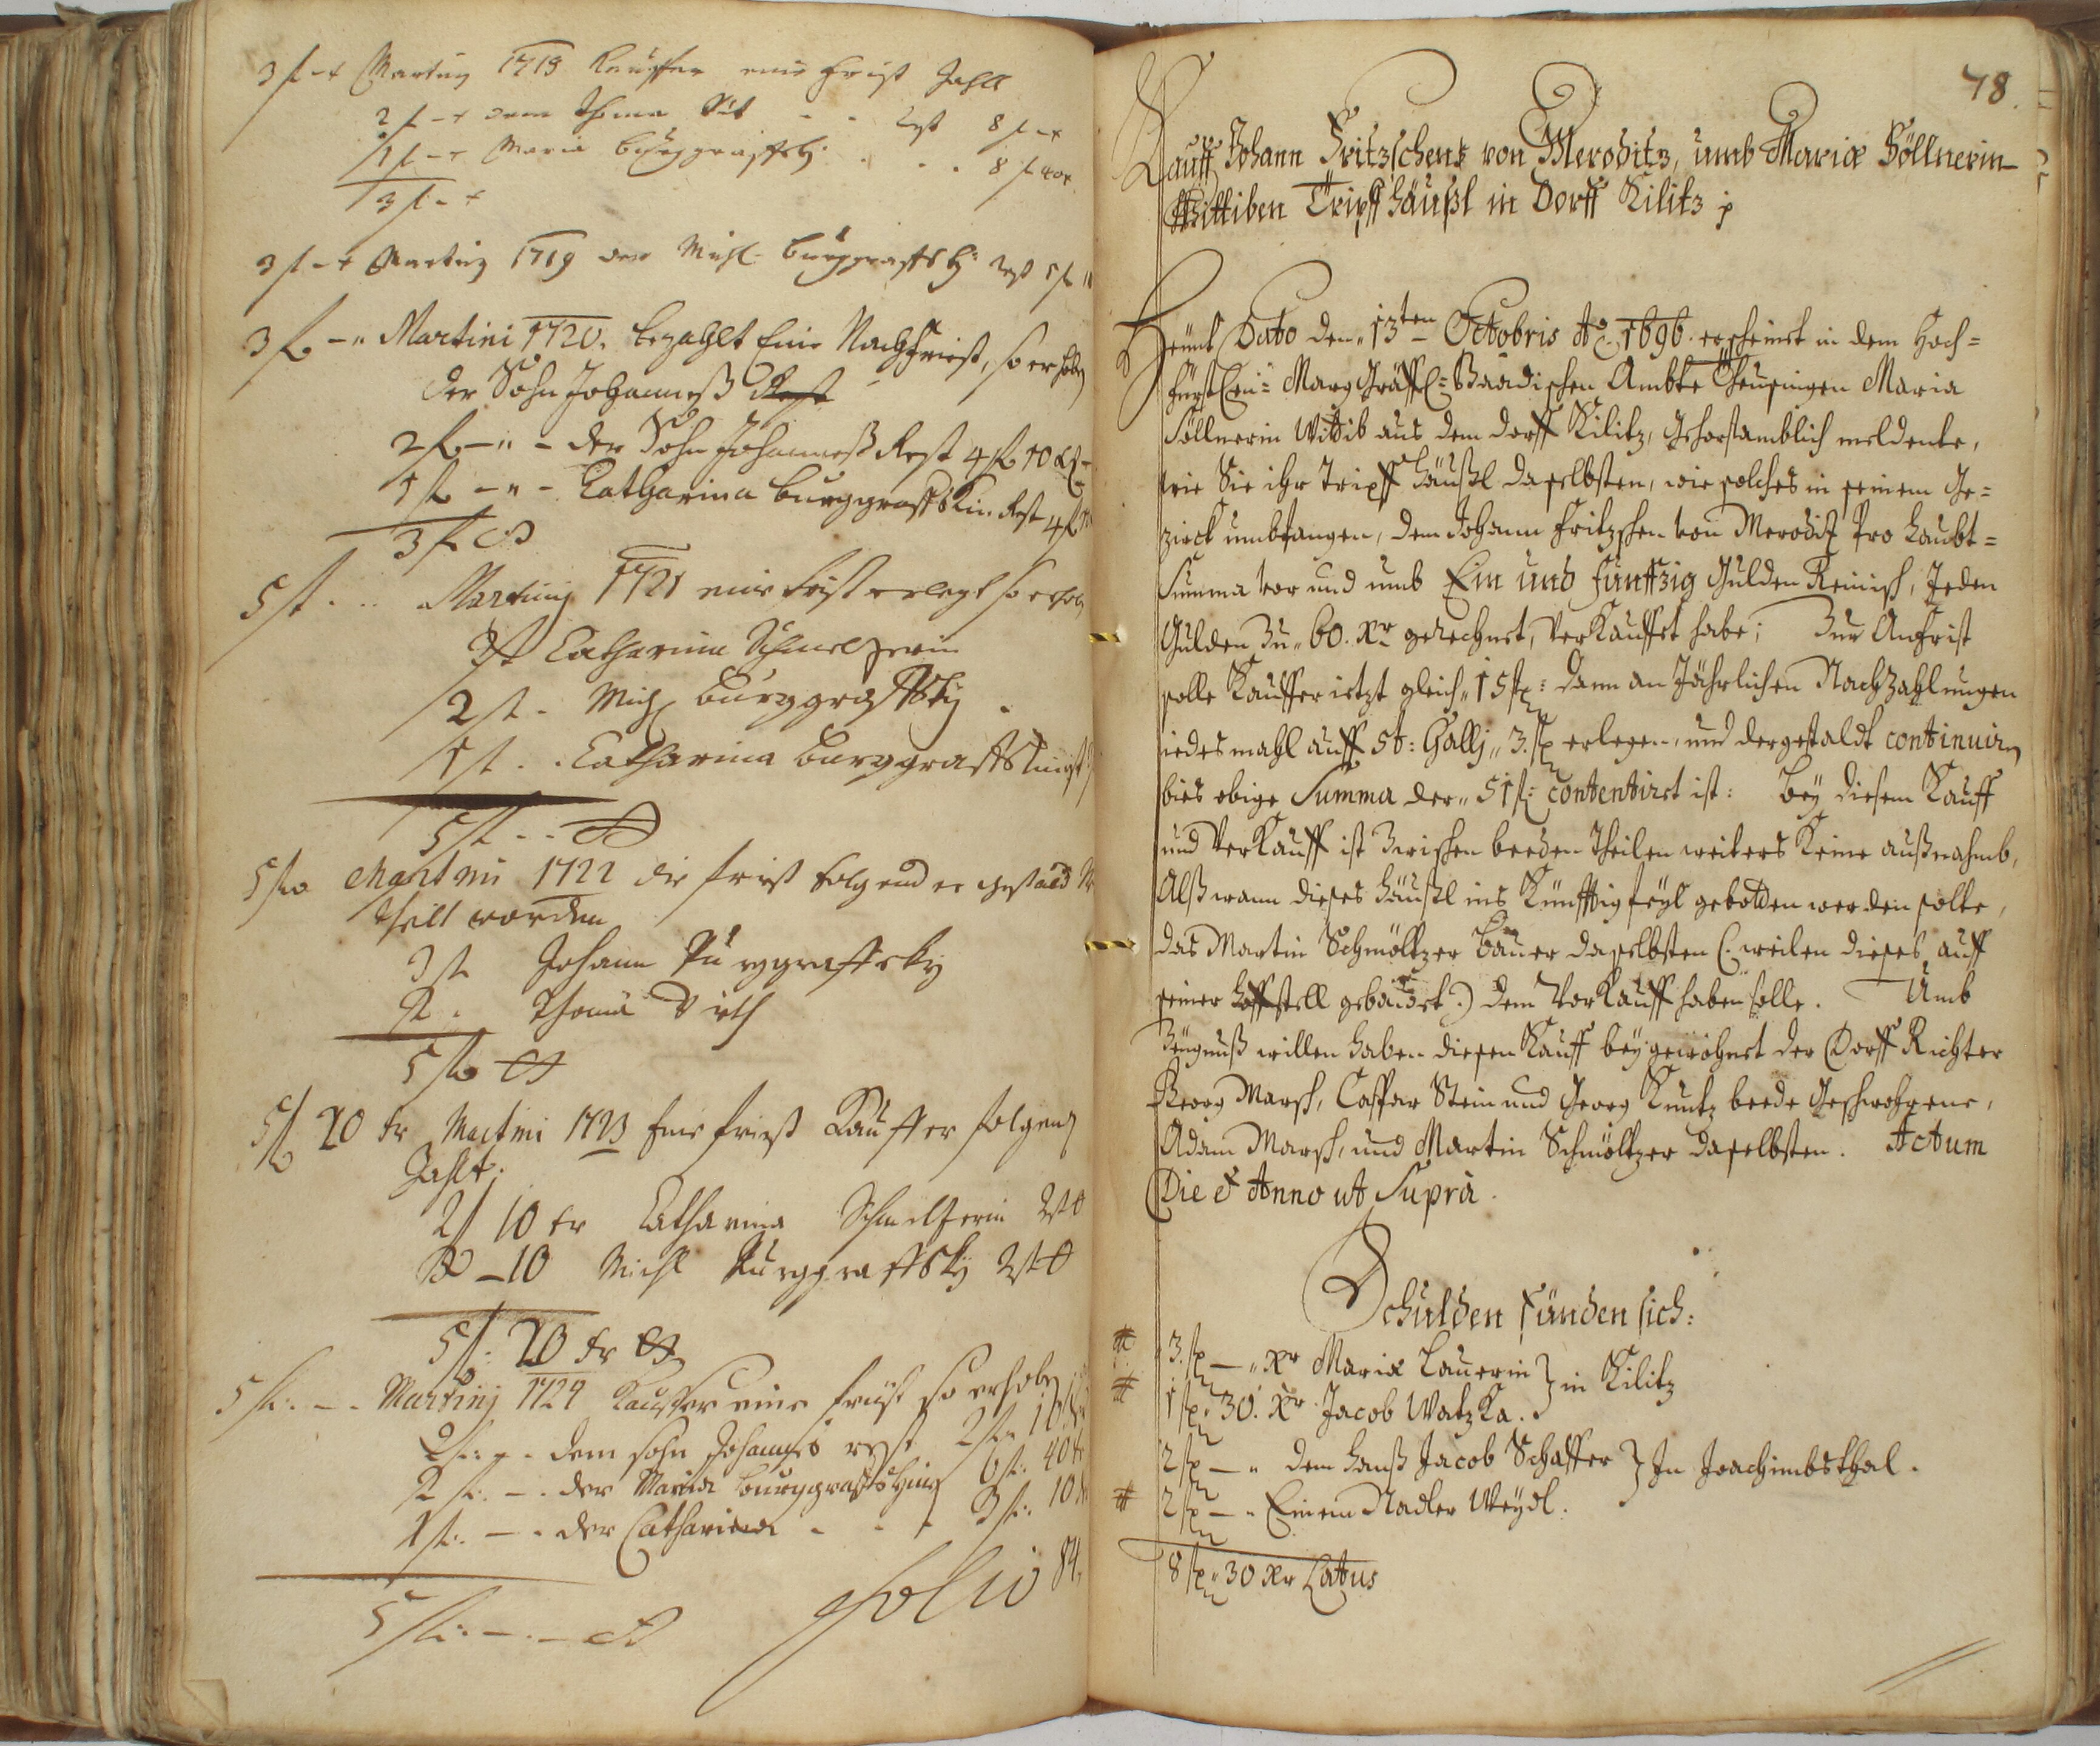 3 f - x Martiny 1718 Kauffer eine Frist Zahlt
2 f - x dem Thoma Vit - - Rest 8 f - x
1 f - x Maria Burggraffsky . . . 8 f 40 x
3 f - x
3 f - x Martiny 1719 der Michl Burggraffsky Rest 5 f
3 f -" Martini 1720. bezahlt Eine Nachfriest, so erhob
der Sohn Johanneß Rest
2 f -" - der Sohn Johanneß Rest 4 f 10 x
1 f -" - Catharina Burggraffskin Rest 4 f
3 f
5 f . .. Martiny 1721 eine Frist erlegt so erhob
2 f Catharina Schmelzerin
2 f - Mich Burggraffsky .
1 f . . Catharina Burggraffskin
5 f - -
5 fl Martini 1722 die frist folgender gestald
theilt worden
3 fl Johann Purggraffsky
2 . Thoma Virth
5 fl
5 f 20 kr Martini 1723 Eine friest Kauffer folgend
Zahlt.
2 f 10 kr Catharina Schmelzerin
3 - 10 Michl Purggraffsky
5 f: 20 kr
5 f: - - Martiny 1724 Kauffer eine frist so erhoben
2 f: - - dem sohn Johannes rest 2 f 10
2 f: - - der Maria Burggraffskyin 6 f: 40 k
1 f: - - der Catharina - - - 3 f: 10 k
5 f: - - -
folio 84.
78.
Kauff Johann Fritzschens von Meroditz, umb Mariæ Söllnerin
Wittiben Tripff häußl in Dorff Kilitz p
Heünt Dato den" 13ten Octobris Ao. 1696. erscheinet in dem Hoch=
Fürstlen= MargGräffl=Baadischen Ambte Theusingen Maria
Söllnerin Wittib aus dem dorff Kilitz, Gehorsamblich meldente,
wie Sie ihr Tripff häußl daselbsten, wie solches in seinem Ge=
zirck umbfangen, dem Johann Fritzschen von Meroditz Pro Haubt=
Summa vor und umb Ein und funffzig Gulden Reinisch, Jeden
Gulden Zu" 60. Xr gerechnet, verKauffet habe; Zur Anfrist
solle Kauffer ietzt gleich" 15 f: dann an Jährlichen NachZahlungen
iedesmahl auff St: Gallj" 3. f erlegen, und dergestaldt continuirn
bies obige Summa der" 51 f: contentiret ist: Bey diesem Kauff
und Verkauff ist Zwischen beeden Theilen weiters Keine außnahmb,
Alß wann dieses häußl ins Künfftig feyl gebotten werden solte,
das Martin Schmöltzer Bauer daselbsten (: weilen dieses auff
seiner Hoffstell gebauet :) dem VorKauff haben solle. Umb
Zeügnuß willen haben diesen Kauff beygewohnet der Dorff Richter
Georg Marsch, Caspar Stein und Georg Kuntz beede Geschwohrene,
Adam Marsch, und Martin Schmöltzer daselbsten. Actum
Die et Anno ut Supra.
Schulden fünden sich:
# 3. f — " Xr Mariæ Bauerin } in Kilitz
# 1 f" 30. Xr Jacob Watzka.
2 f — " dem Hanß Jacob Schaffer } In Joachimbsthal.
# 2 f — " Einem Nadler Weydl.
8 f" 30 Xr Latus